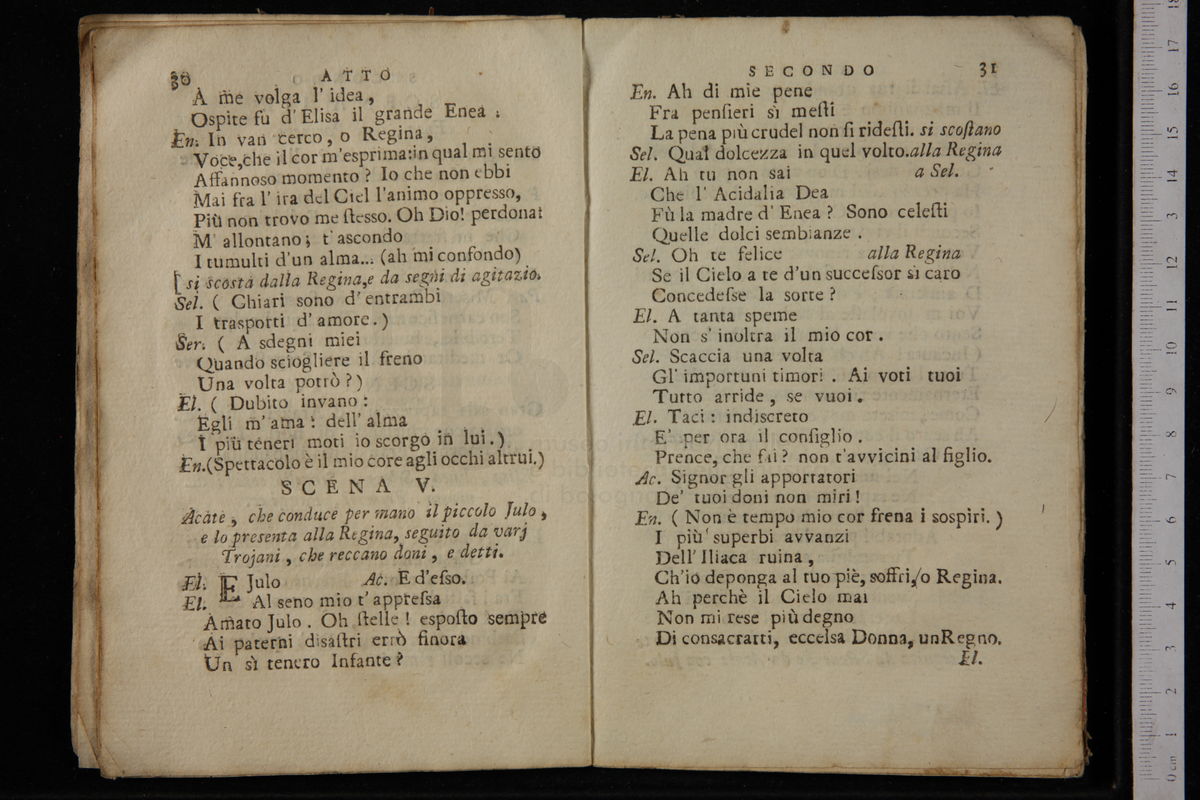 30 ATTO
A me volga l' idea,
Ospite fu d' Elisa il grande Enea :
En. In van cerco, o Regina,
Voce,che il cor m'esprima:in qual mi sento
Affannoso momento ? Io che non ebbi
Mai fra l' ira del Ciel l'animo oppresso,
Più non trovo me ſtesso. Oh Dio! perdona!
M' allontano; t' ascondo
I tumulti d'un alma... (ah mi confondo)
[ si scosta dalla Regina,e da segni di agitazio.
Sel. ( Chiari sono d' entrambi
I trasporti d' amore.)
Ser. ( A sdegni miei
Quando sciogliere il freno
Una volta potrò ?)
El. ( Dubito invano :
Egli m' ama : dell' alma
I più teneri moti io scorgo in lui.)
En.(Spettacolo è il mio core agli occhi altrui.)
SCENA V.
Acate, che conduce per mano il piccolo Julo,
e lo presenta alla Regina, seguito da varj
Trojani, che reccano doni, e detti.
El. E Julo Ac. E d'eſso.
El. Al seno mio t' appreſsa
Amato Julo . Oh ſtelle ! espoſto sempre
Ai paterni disaſtri errò finora
Un sì tenero Infante ?
SECONDO 31
En. Ah di mie pene
Fra penſieri sì meſti
La pena più crudel non ſi rideſti. si scoſtano
Sel. Qual dolcezza in quel volto.alla Regina
El. Ah tu non sai a Sel.
Che l' Acidalia Dea
Fù la madre d' Enea ? Sono celeſti
Quelle dolci sembianze .
Sel. Oh te felice alla Regina
Se il Cielo a te d'un succeſsor sì caro
Concedeſse la sorte ?
El. A tanta speme
Non s' inoltra il mio cor .
Sel. Scaccia una volta
Gl' importuni timori . Ai voti tuoi
Tutto arride, se vuoi.
El. Taci : indiscreto
E' per ora il conſiglio .
Prence, che fù ? non t'avvicini al figlio.
Ac. Signor gli apportatori
De' tuoi doni non miri !
En. ( Non è tempo mio cor frena i sospiri. )
I più superbi avvanzi
Dell' Iliaca ruina ,
Ch'io deponga al tuo piè, soffri,/o Regina.
Ah perchè il Cielo mai
Non mi rese più degno
Di consacrarti, eccelsa Donna, unRegno.
El.